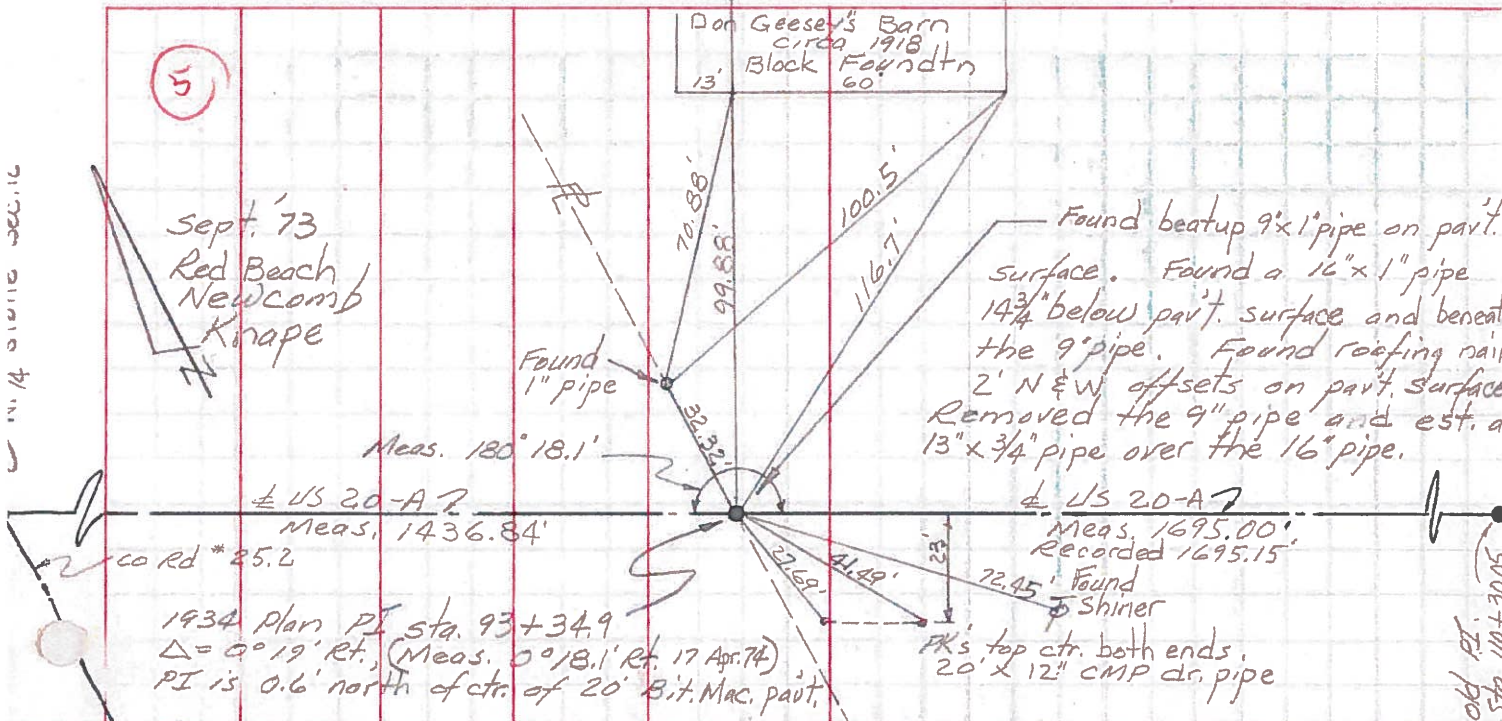 Don Geesey's Barn
circa 1918
Block Foundtn
13' 60'
5
Sept. '73
Red Beach
Newcomb
Knape
N
70.88'
99.88'
100.5'
116.7'
Found
1" pipe
32.32'
Found beatup 9"x1" pipe on pav't.
surface. Found a 16"x1" pipe
14¾" below pav't. surface and beneat
the 9" pipe. Found roofing nail
2' N & W offsets on pav't. surface
Removed the 9" pipe and est. a
13"x3/4" pipe over the 16" pipe.
Meas. 180°18.1'
℄ US 20-A
Meas. 1436.84'
℄ US 20-A
Meas. 1695.00'
Recorded 1695.15'
co Rd #25.2
23'
27.69'
41.49'
72.45'
Found
Shiner
PK's top ctr. both ends.
20' x 12" CMP dr. pipe
1934 Plan PI sta. 93+34.9
Δ=0°19' Rt. (Meas. 0°18.1' Rt. 17 Apr. 74)
PI is 0.6' north of ctr. of 20' Bit. Mac. pav't.
Old PI.